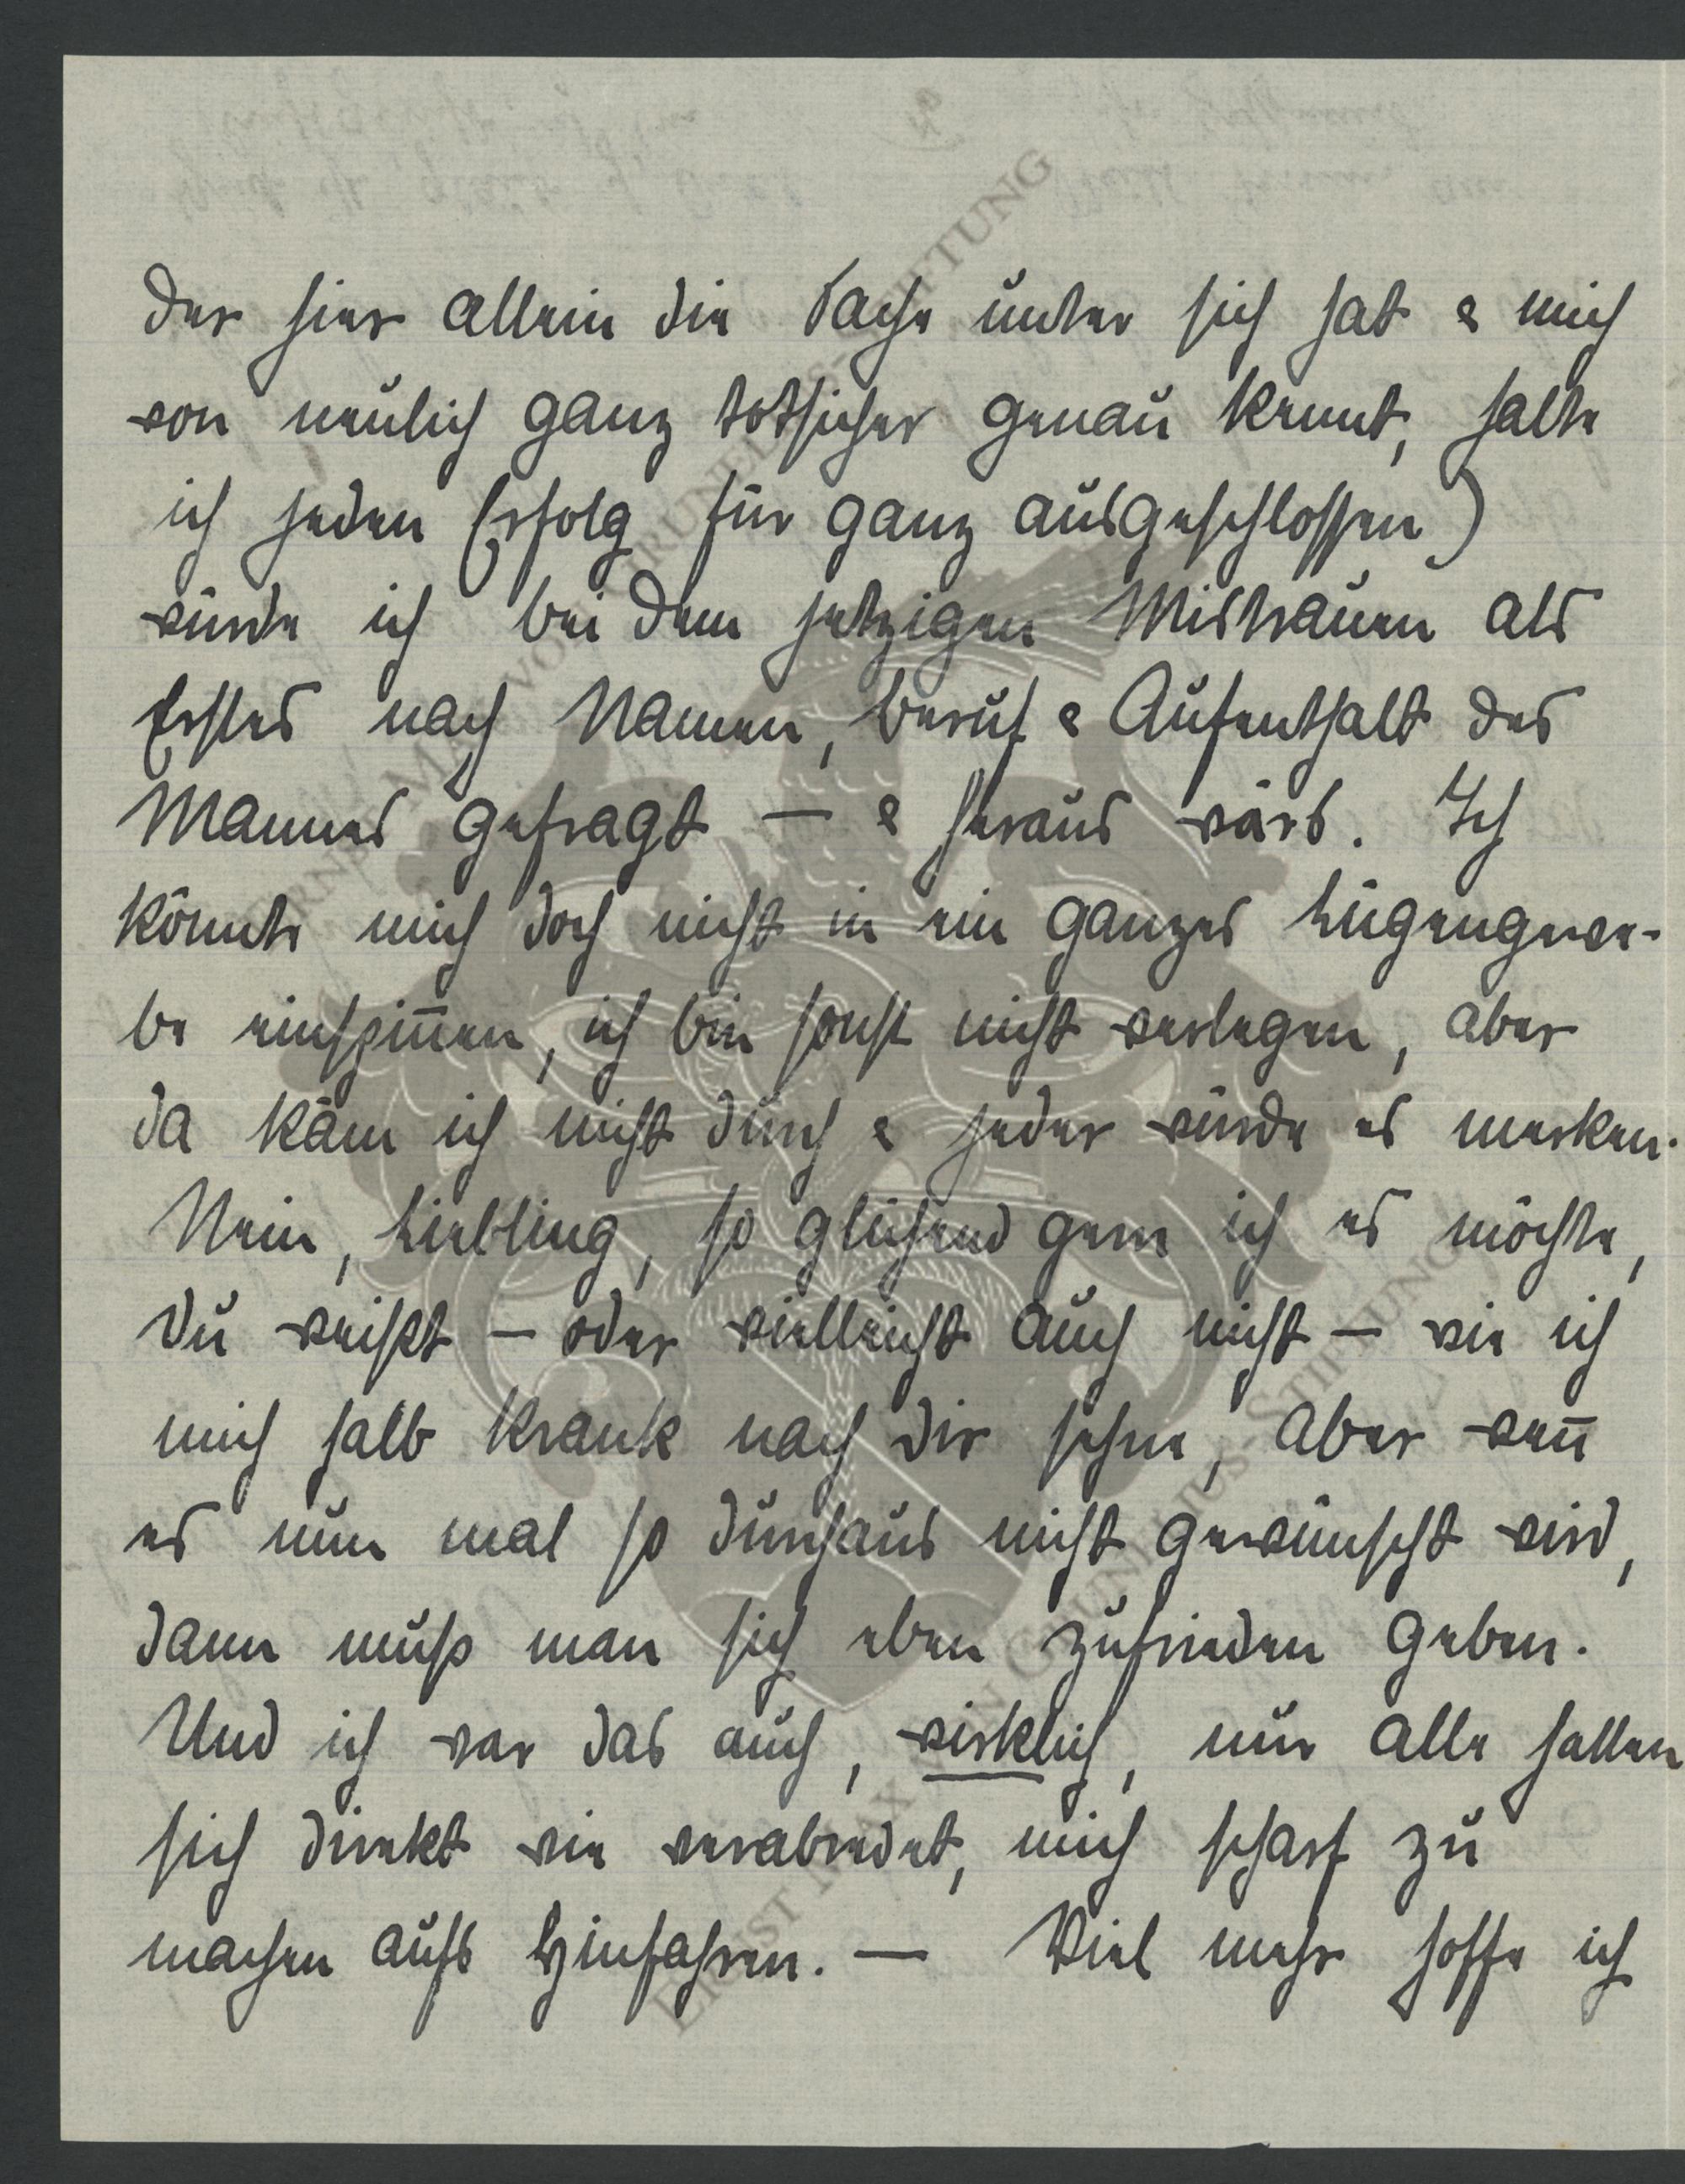 der hier allein die Sache unter sich hat & mich
von neulich ganz totsicher genau kennt, halte
ich jeden Erfolg für ganz ausgeschlossen)
würde ich bei dem jetzigen Mistrauen als
Erstes nach Namen, Beruf & Aufenthalt des
Mannes gefragt — & heraus wärs. Ich
könnte mich doch nicht in ein ganzes Lügengewe-
be einspin̄en, ich bin sonst nicht verlegen, aber
da käm ich nicht durch & jeder würde es merken.
Nein, Liebling, so glühend gern ich es möchte,
Du weißt — oder vielleicht auch nicht — wie ich
mich halb krank nach Dir sehne, aber wen̄
es nun mal so durchaus nicht gewünscht wird,
dann muß man sich eben zufrieden geben.
Und ich war das auch, wirklich, nur alle hatten
sich direkt wie verabredet, mich scharf zu
machen aufs Hinfahren. — Viel mehr hoffe ich
ERNST MAX VON GRUNELIUS-STIFTUNG
ERNST MAX VON GRUNELIUS-STIFTUNG